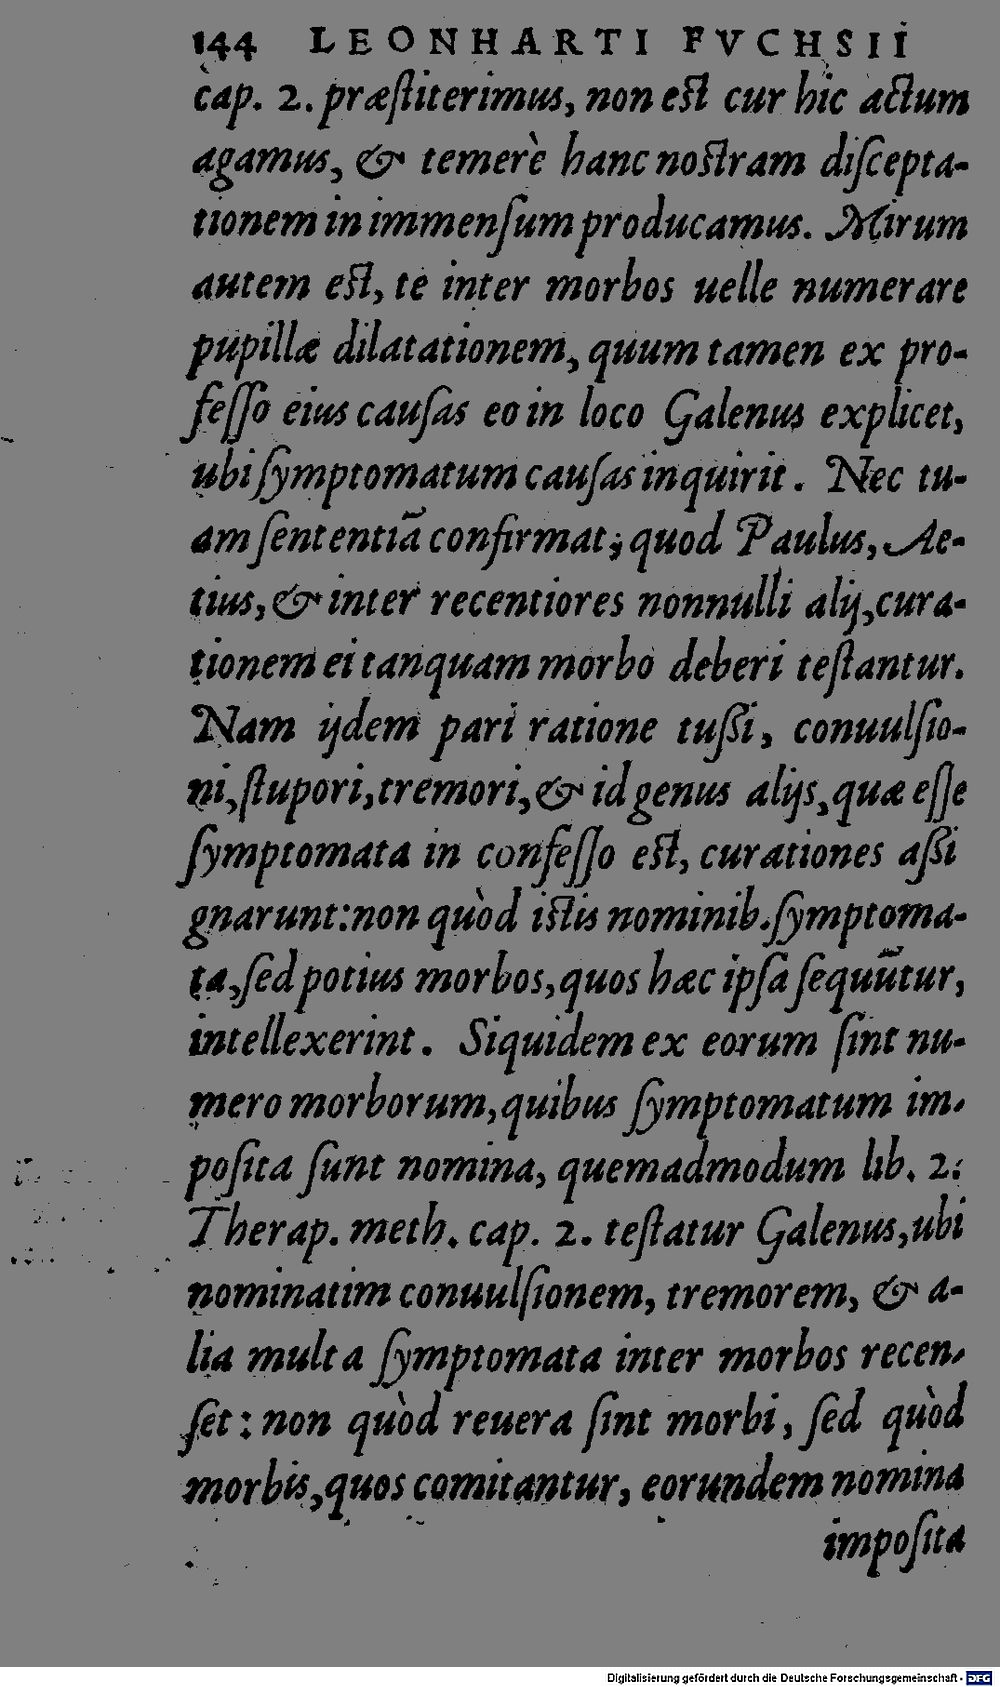 144 LEONHARTI FVCHSII
cap. 2. præſtiterimus, non est cur hic actum
agamus, & temerè hanc nostram diſcepta-
tionem in immenſum producamus. Mirum
autem est, te inter morbos uelle numerare
pupillæ dilatationem, quum tamen ex pro-
feſſo eius cauſas eo in loco Galenus explicet,
ubi ſymptomatum cauſas inquirit. Nec tu-
am ſententiã confirmat; quod Paulus, Ae-
tius, & inter recentiores nonnulli alij, cura-
tionem ei tanquam morbo deberi teſtantur.
Nam ijdem pari ratione tußi, conuulſio-
ni, ſtupori, tremori, & id genus alijs, quæ eſſe
ſymptomata in confeſſo est, curationes aßi
gnarunt: non quòd istis nominib. ſymptoma-
ta, ſed potius morbos, quos hæc ipſa ſequũtur,
intellexerint. Siquidem ex eorum ſint nu-
mero morborum, quibus ſymptomatum im-
poſita ſunt nomina, quemadmodum lib. 2.
Therap. meth. cap. 2. teſtatur Galenus, ubi
nominatim conuulſionem, tremorem, & a-
lia multa ſymptomata inter morbos recen-
ſet: non quòd reuera ſint morbi, ſed quòd
morbis, quos comitantur, eorundem nomina
impoſita
Digitalisierung gefördert durch die Deutsche Forschungsgemeinschaft - DFG